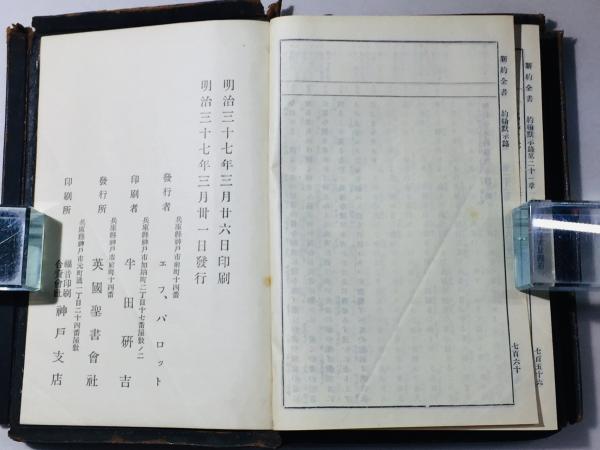 新約全書 約翰默示錄第二十一章
七百五十六
新約全書 約翰默示錄
七百六十
明治三十七年三月廿六日印刷
明治三十七年三月卅一日發行
兵庫縣神戸市前町十四番
發行者 エフ、パロット
兵庫縣神戸市加納町二丁目十七番屋敷ノ二
印刷者 半田研吉
兵庫縣神戸市前町十四番
發行所 英國聖書會社
兵庫縣神戸市元町通一丁目二十四番屋敷
印刷所 福音印刷合資會社 神戸支店